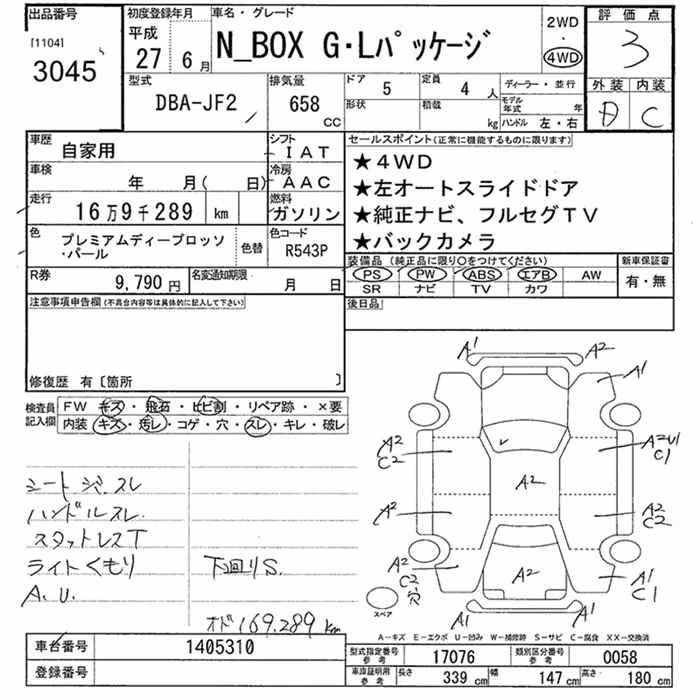 出品番号
[1104]
3045
初度登録年月
平成
27 6月
車名・グレード
N_BOX G・Lパッケージ
2WD
・
4WD
評価点
3
型式
DBA-JF2
排気量
658
CC
ドア 5
定員 4 人
形状
積載 kg
ディーラー・並行
モデル年式 年
ハンドル 左・右
外装 内装
C
車歴 自家用
シフト IAT
車検 年 月( 日)
冷房 AAC
走行 16万9千289 km
燃料 ガソリン
色 プレミアムディープロッソ・パール
色替
色コード R543P
R券 9,790円
名変通知期限 月 日
セールスポイント(正常に機能するものに限ります)
★4WD
★左オートスライドドア
★純正ナビ、フルセグTV
★バックカメラ
装備品 (純正品に限り○をつけてください)
新車保証書
PS PW ABS エアB AW
SR ナビ TV カワ
有・無
後日品
注意事項申告欄(不具合内容等は具体的に記入して下さい)
修復歴 有〔箇所 〕
検査員記入欄
FW キズ・飛石・ヒビ割・リペア跡・×要
内装 キズ・汚レ・コゲ・穴・スレ・キレ・破レ
ハンドルスレ
スタットレスT
ライトくもり
A.U.
下回りS.
オド169.289km
A1 A2
A1
A2
C2
A2U1
C1
A2
A2
A2
C2
A2
C2
穴
A2
A1
C1
A1 A2
スペア
A-キズ E-エクボ U-凹み W-補修跡 S-サビ C-腐食 XX-交換済
車台番号 1405310
登録番号
型式指定番号 参考 17076
類別区分番号 参考 0058
車庫証明用 参考
長さ 339 cm
幅 147 cm
高さ 180 cm